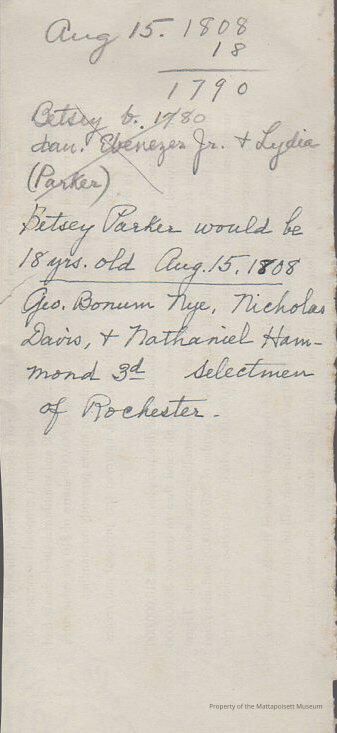 Aug 15. 1808
18
1790
Betsey b. 1780
dau. Ebenezer Jr. + Lydia
(Parker)
Betsey Parker would be
18 yrs. old Aug. 15, 1808
Geo. Bonum Nye, Nicholas
Davis, + Nathaniel Ham-
mond 3d Selectmen
of Rochester.
Property of the Mattapoisett Museum